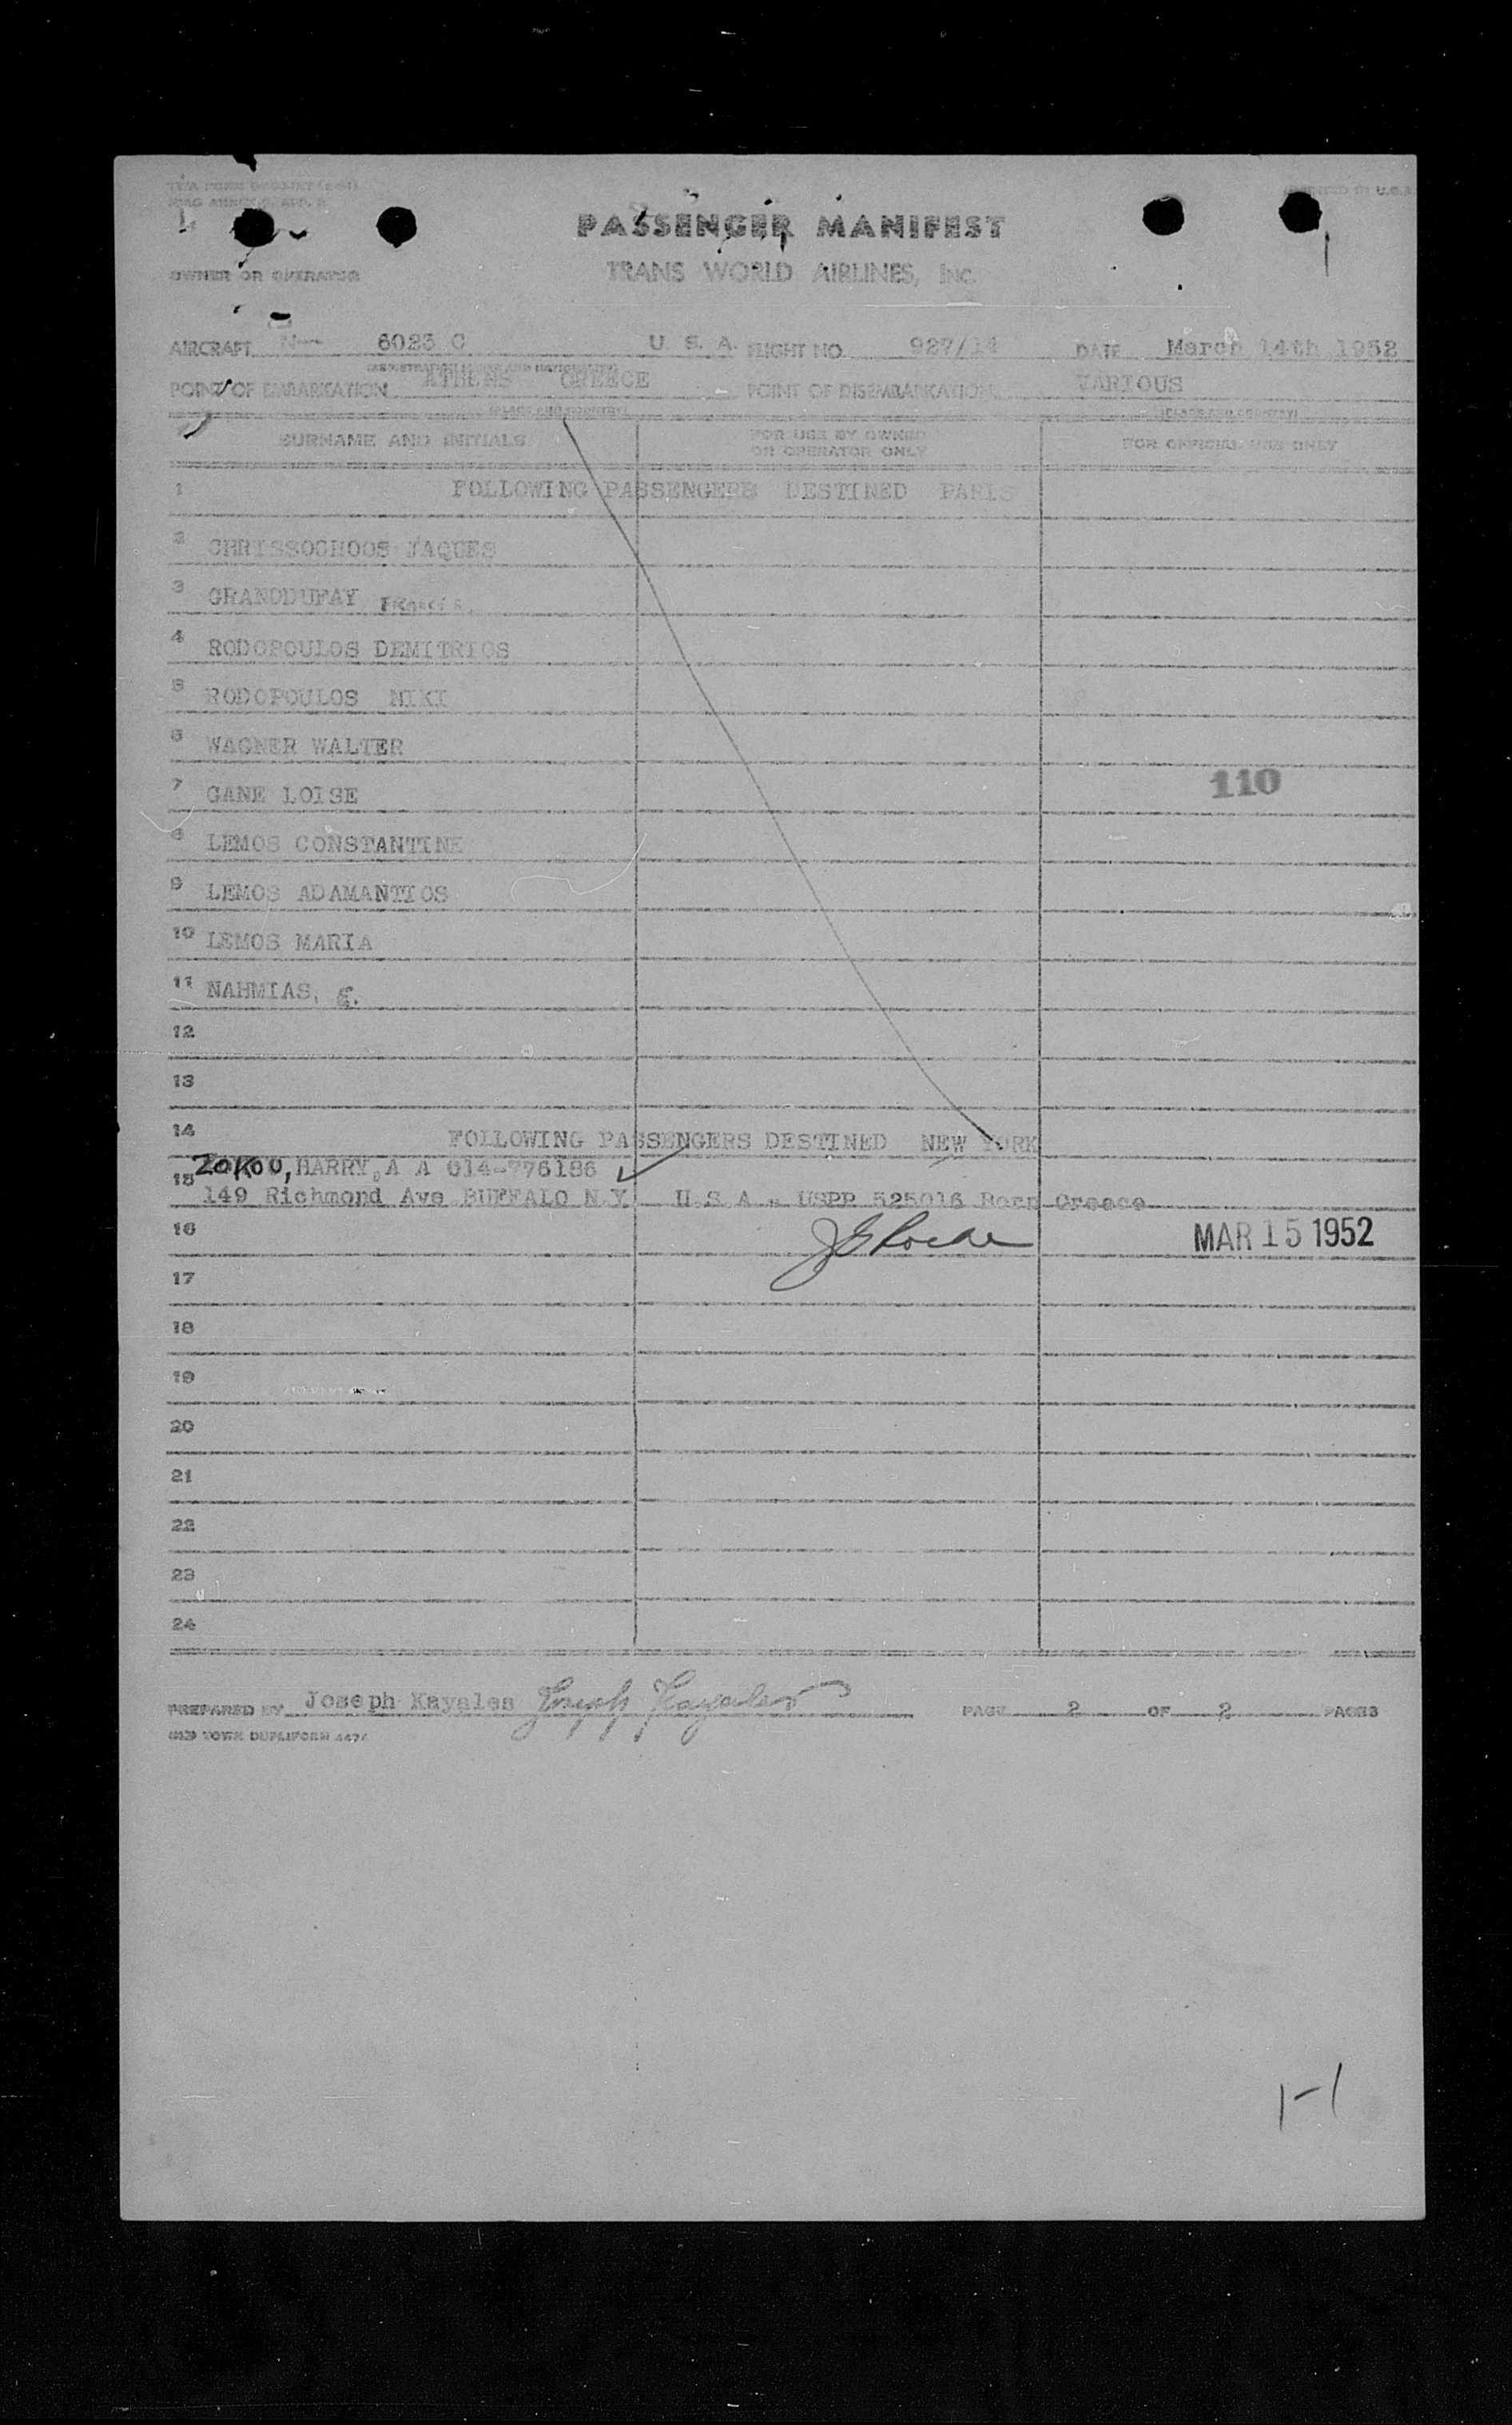 PRINTED IN U.S.A.
PASSENGER MANIFEST
OWNER OR OPERATOR TRANS WORLD AIRLINES, INC.
AIRCRAFT N-- 6025 C U. S. A. FLIGHT NO. 927/14 DATE March 14th 1952
POINT OF EMBARKATION ATHENS GREECE POINT OF DISEMBARKATION VARIOUS
(PLACE AND COUNTRY) (PLACE AND COUNTRY)
SURNAME AND INITIALS FOR USE BY OWNER OR OPERATOR ONLY FOR OFFICIAL USE ONLY
1 FOLLOWING PASSENGERS DESTINED PARIS
2 CHRISSOCHOOS JAQUES
3 GRANDDUFAY
4 RODOPOULOS DEMITRIOS
5 RODOPOULOS NIKI
6 WAGNER WALTER
7 GANE LOISE
110
8 LEMOS CONSTANTINE
9 LEMOS ADAMANTIOS
10 LEMOS MARIA
11 NAHMIAS, G.
12
13
14 FOLLOWING PASSENGERS DESTINED NEW YORK
15 ZOKOU, HARRY, A A 014-776186
149 Richmond Ave BUFFALO N.Y. U.S.A. - USPP 525016 Born Greece
16 MAR 15 1952
17
18
19
20
21
22
23
24
PREPARED BY Joseph Kayales Joseph Kayales PAGE 2 OF 2 PAGES